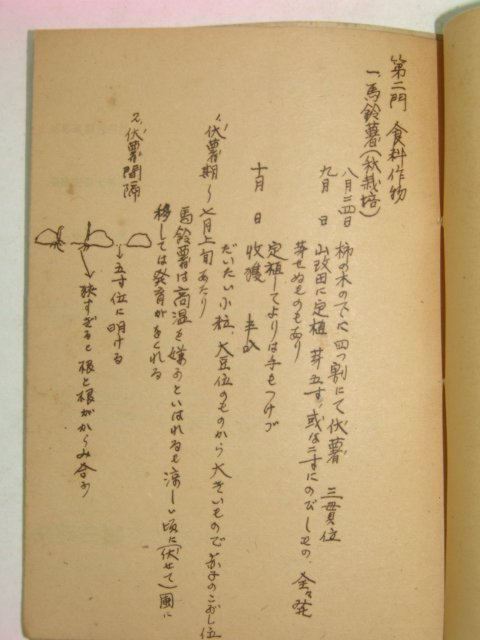 第二門 食料作物
一、馬鈴薯(秋栽培)
八月二四日 柿の木の下に四つ割にて伏薯 三貫位
九月 日 山改田に定植 芽五寸、或は二寸にのびしもの、全々発
芽せぬものもあり
定植してよりは手もつけず
十月 日 収獲 半
1、伏薯期〜七月上旬あたり
だいたい小粒、大豆位のものから大きいもので 子のこぶし位
馬鈴薯は高温を嫌うといはれるも涼しい頃に(伏せて)圃に
移しては発育がおくれる
2、伏薯間隔
→五寸位に明ける
→狭すぎると根と根がからみ合う